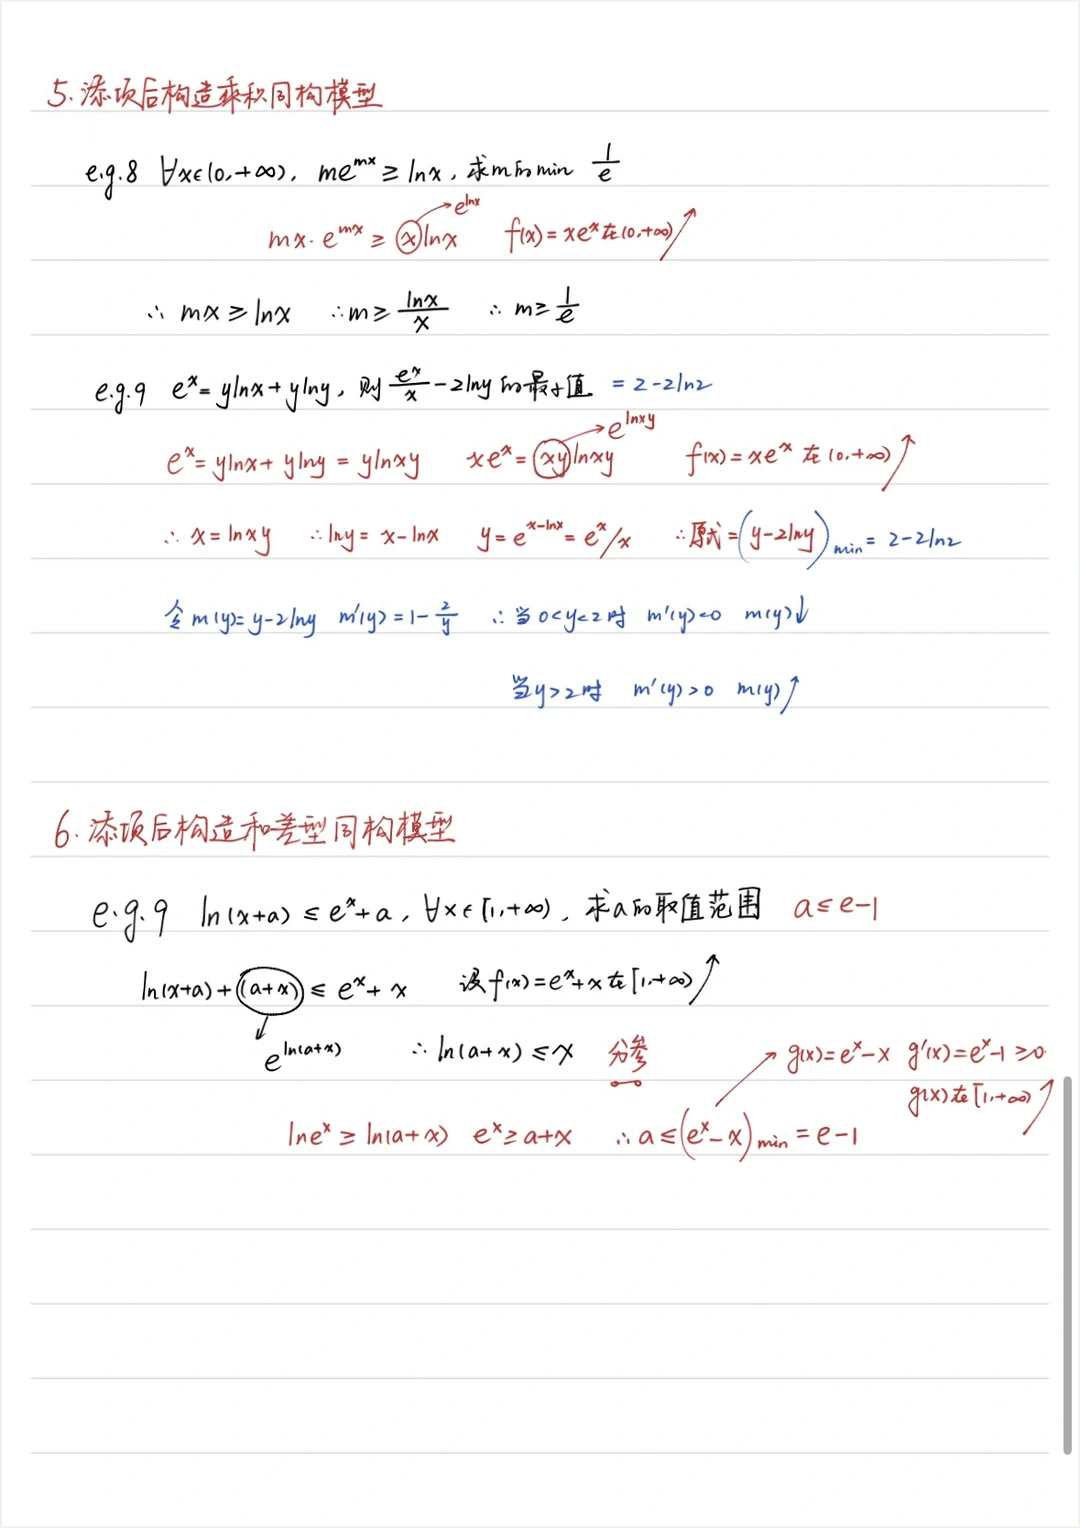 5.添项后构造乘积同构模型
e.g.8 ∀x∈(0,+∞), me^{mx} ≥ lnx, 求m的min 1/e
mx·e^{mx} ≥ xlnx →e^{lnx} f(x)=xe^x在(0,+∞)↗
∴ mx ≥ lnx ∴m≥ lnx/x ∴ m≥ 1/e
e.g.9 e^x= ylnx+ylny, 则 e^x/x -2lny的最小值 =2-2ln2
e^x= ylnx+ ylny = ylnxy xe^x= xylnxy →e^{lnxy} f(x)=xe^x 在(0,+∞)↗
∴ x=lnxy ∴lny= x-lnx y= e^{x-lnx}= e^x/x ∴原式=(y-2lny)min = 2-2ln2
令m(y)=y-2lny m'(y)=1- 2/y ∴当0<y<2时 m'(y)<0 m(y)↓
当y>2时 m'(y)>0 m(y)↗
6.添项后构造和差型同构模型
e.g.9 ln(x+a) ≤ e^x+a, ∀x∈[1,+∞), 求a的取值范围 a≤e-1
ln(x+a)+(a+x) ≤ e^x+ x 设f(x)=e^x+x在[1,+∞)↗
↓ e^{ln(a+x)} ∴ ln(a+x) ≤x 分参 ↗ g(x)=e^x-x g'(x)=e^x-1≥0
g(x)在[1,+∞)↗
lne^x ≥ ln(a+x) e^x≥a+x ∴a≤(e^x-x)min = e-1